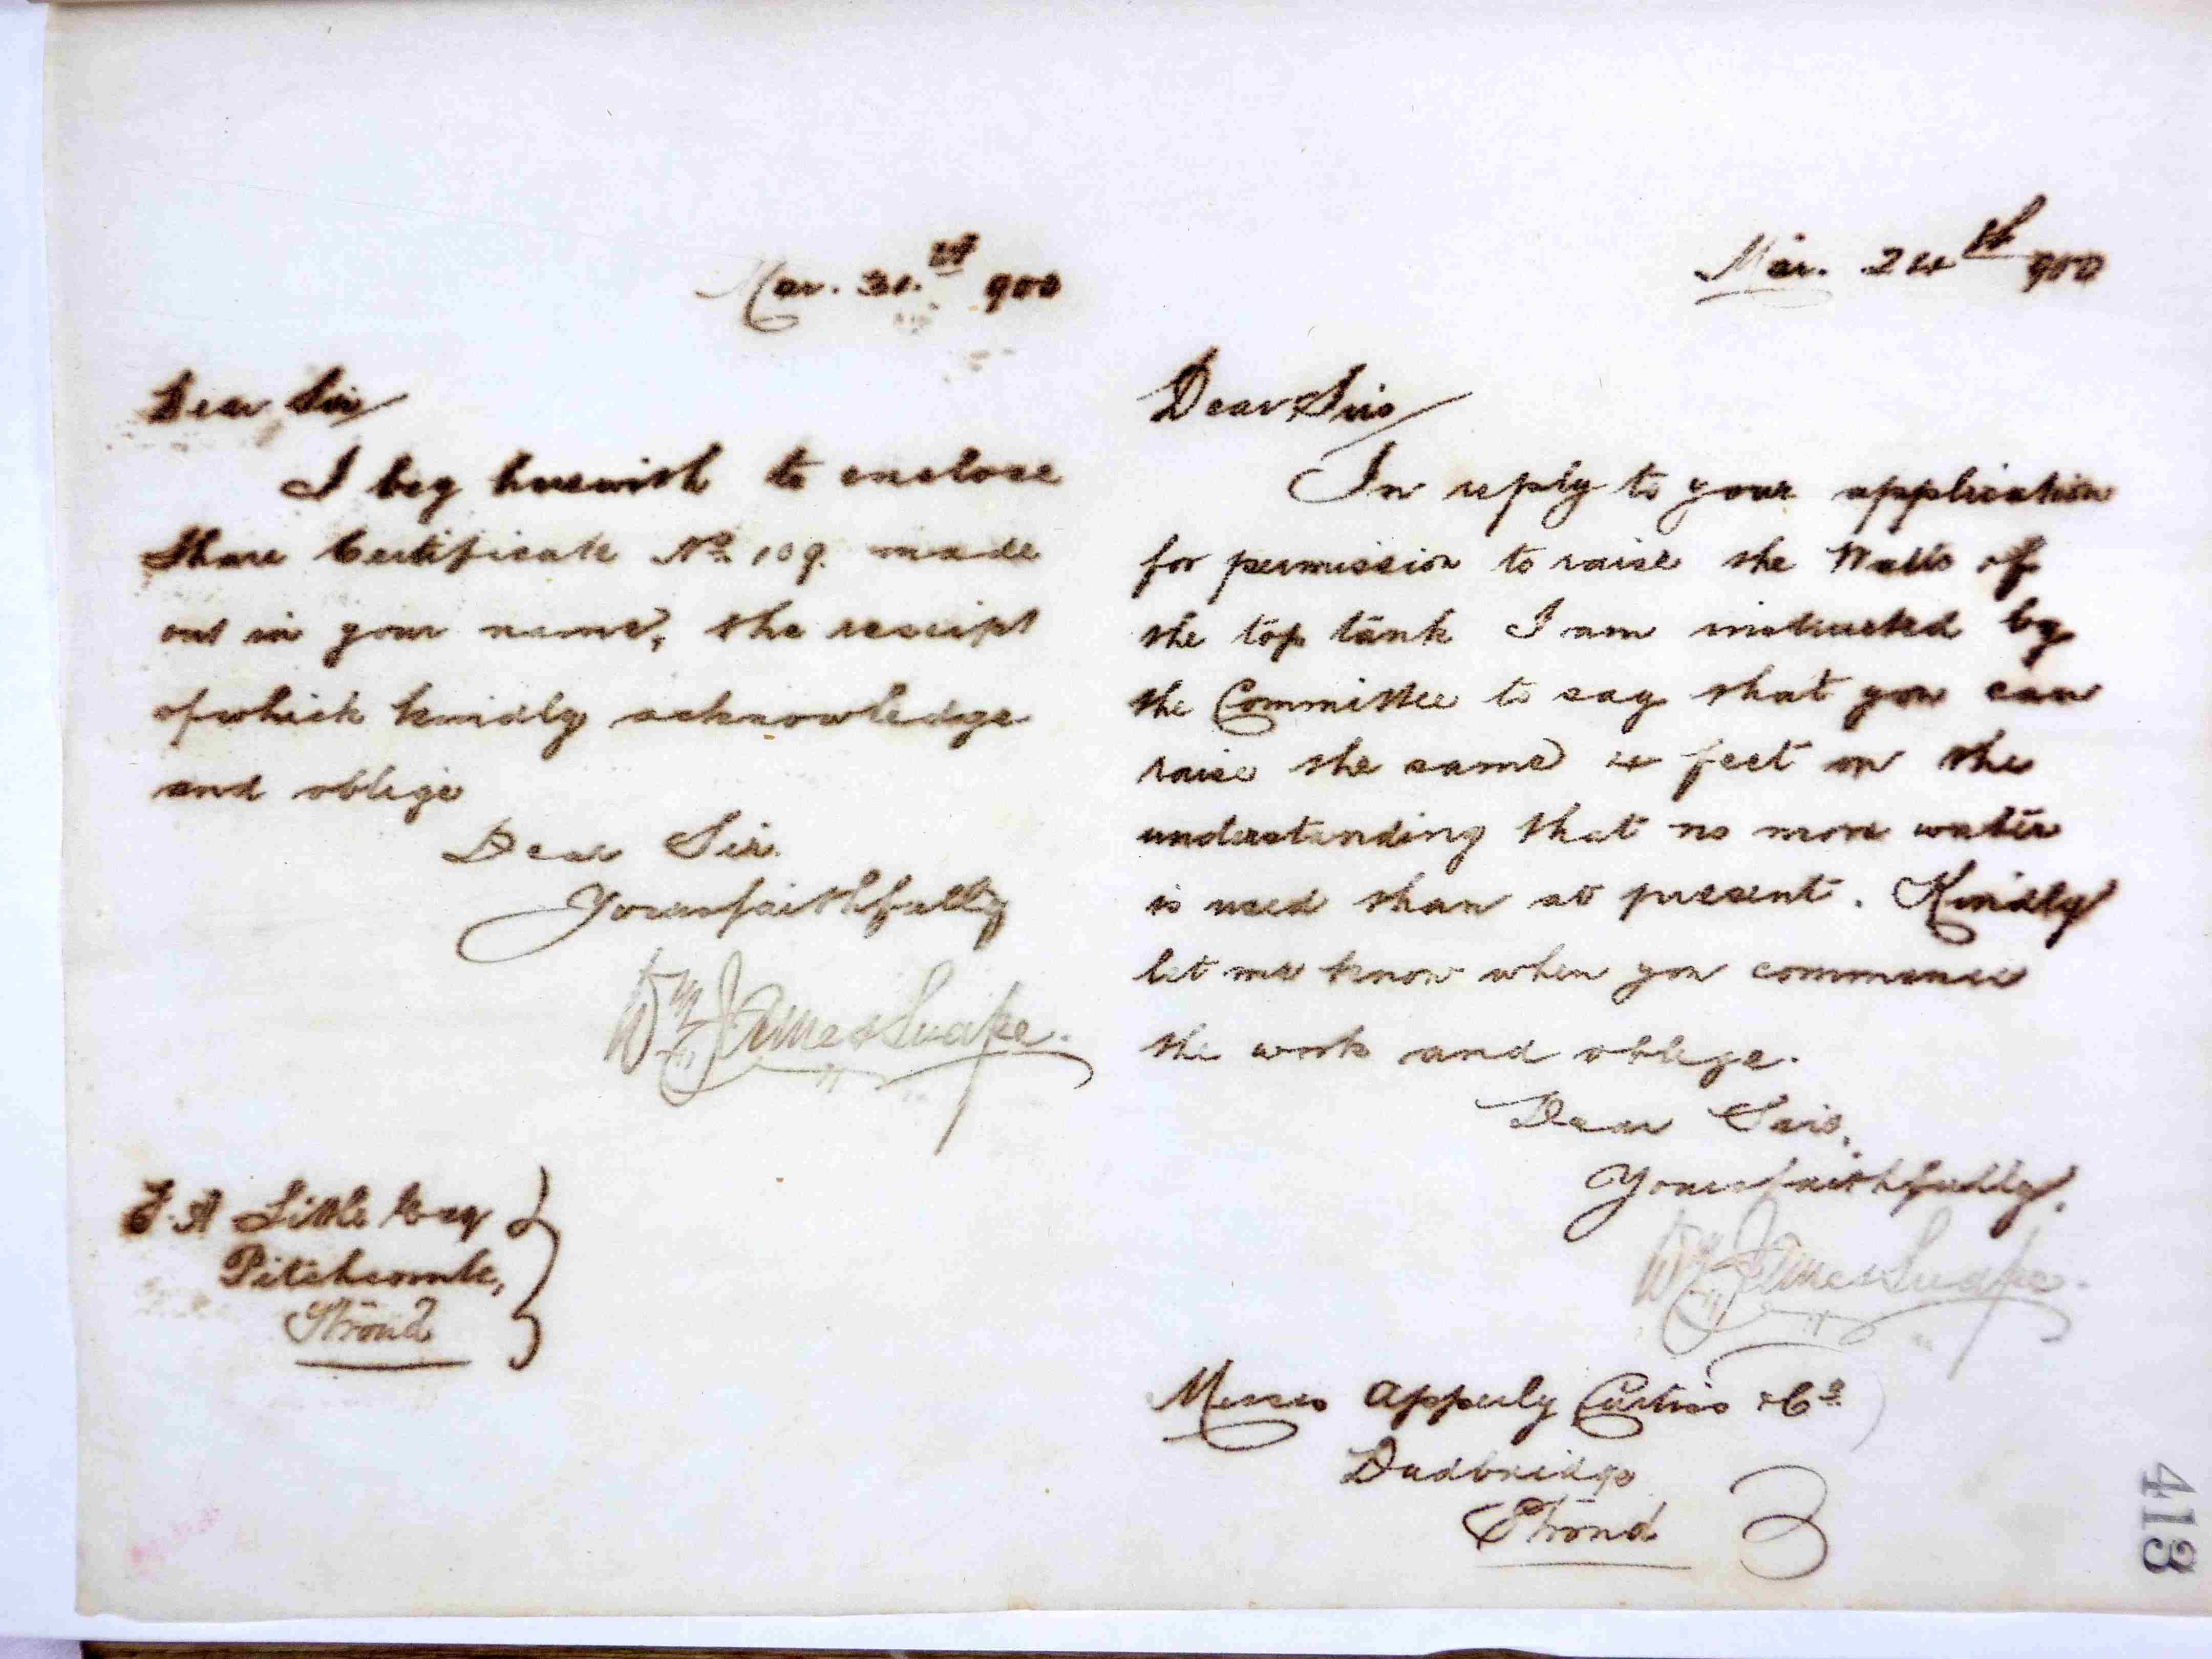 Mar. 21.st 900
Dear Sir
I beg herewith to enclose
Share Certificate No. 109. made
out in your name, the receipt
of which kindly acknowledge
and oblige
Dear Sir.
Yours faithfully
Wm James Snape.
E. A Little Esq
Pitchcombe,
Stroud
Mar. 24th 900
Dear Sirs
In reply to your application
for permission to raise the Walls of
the top tank I am instructed by
the Committee to say that you can
raise the same 4 feet on the
understanding that no more water
is used than at present. Kindly
let me know when you commence
the work and oblige.
Dear Sirs,
Yours faithfully.
Wm James Snape.
Messrs Apperly Curtiss & Co.
Dudbridge
Stroud
413